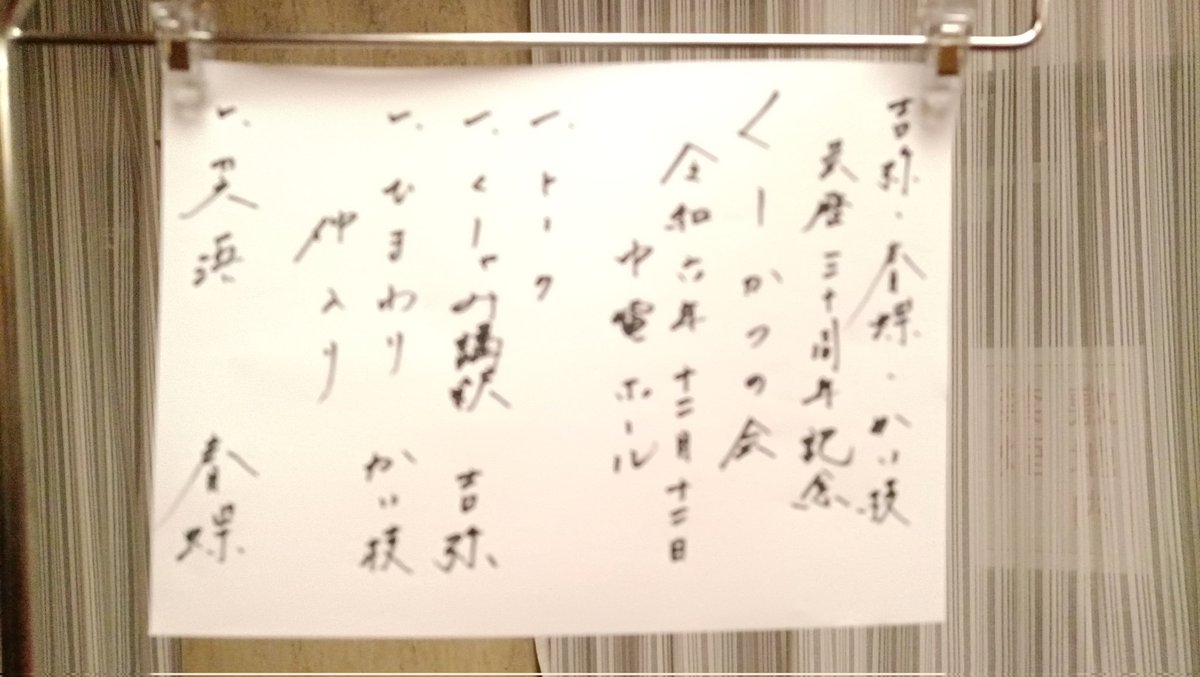 吉弥・春蝶・かい枝
芸歴三十周年記念
くしかつの会
令和六年十二月十二日
中電ホール
一、トーク
一、くしゃみ講釈 吉弥
一、ひまわり かい枝
仲入り
一、芝浜 春蝶